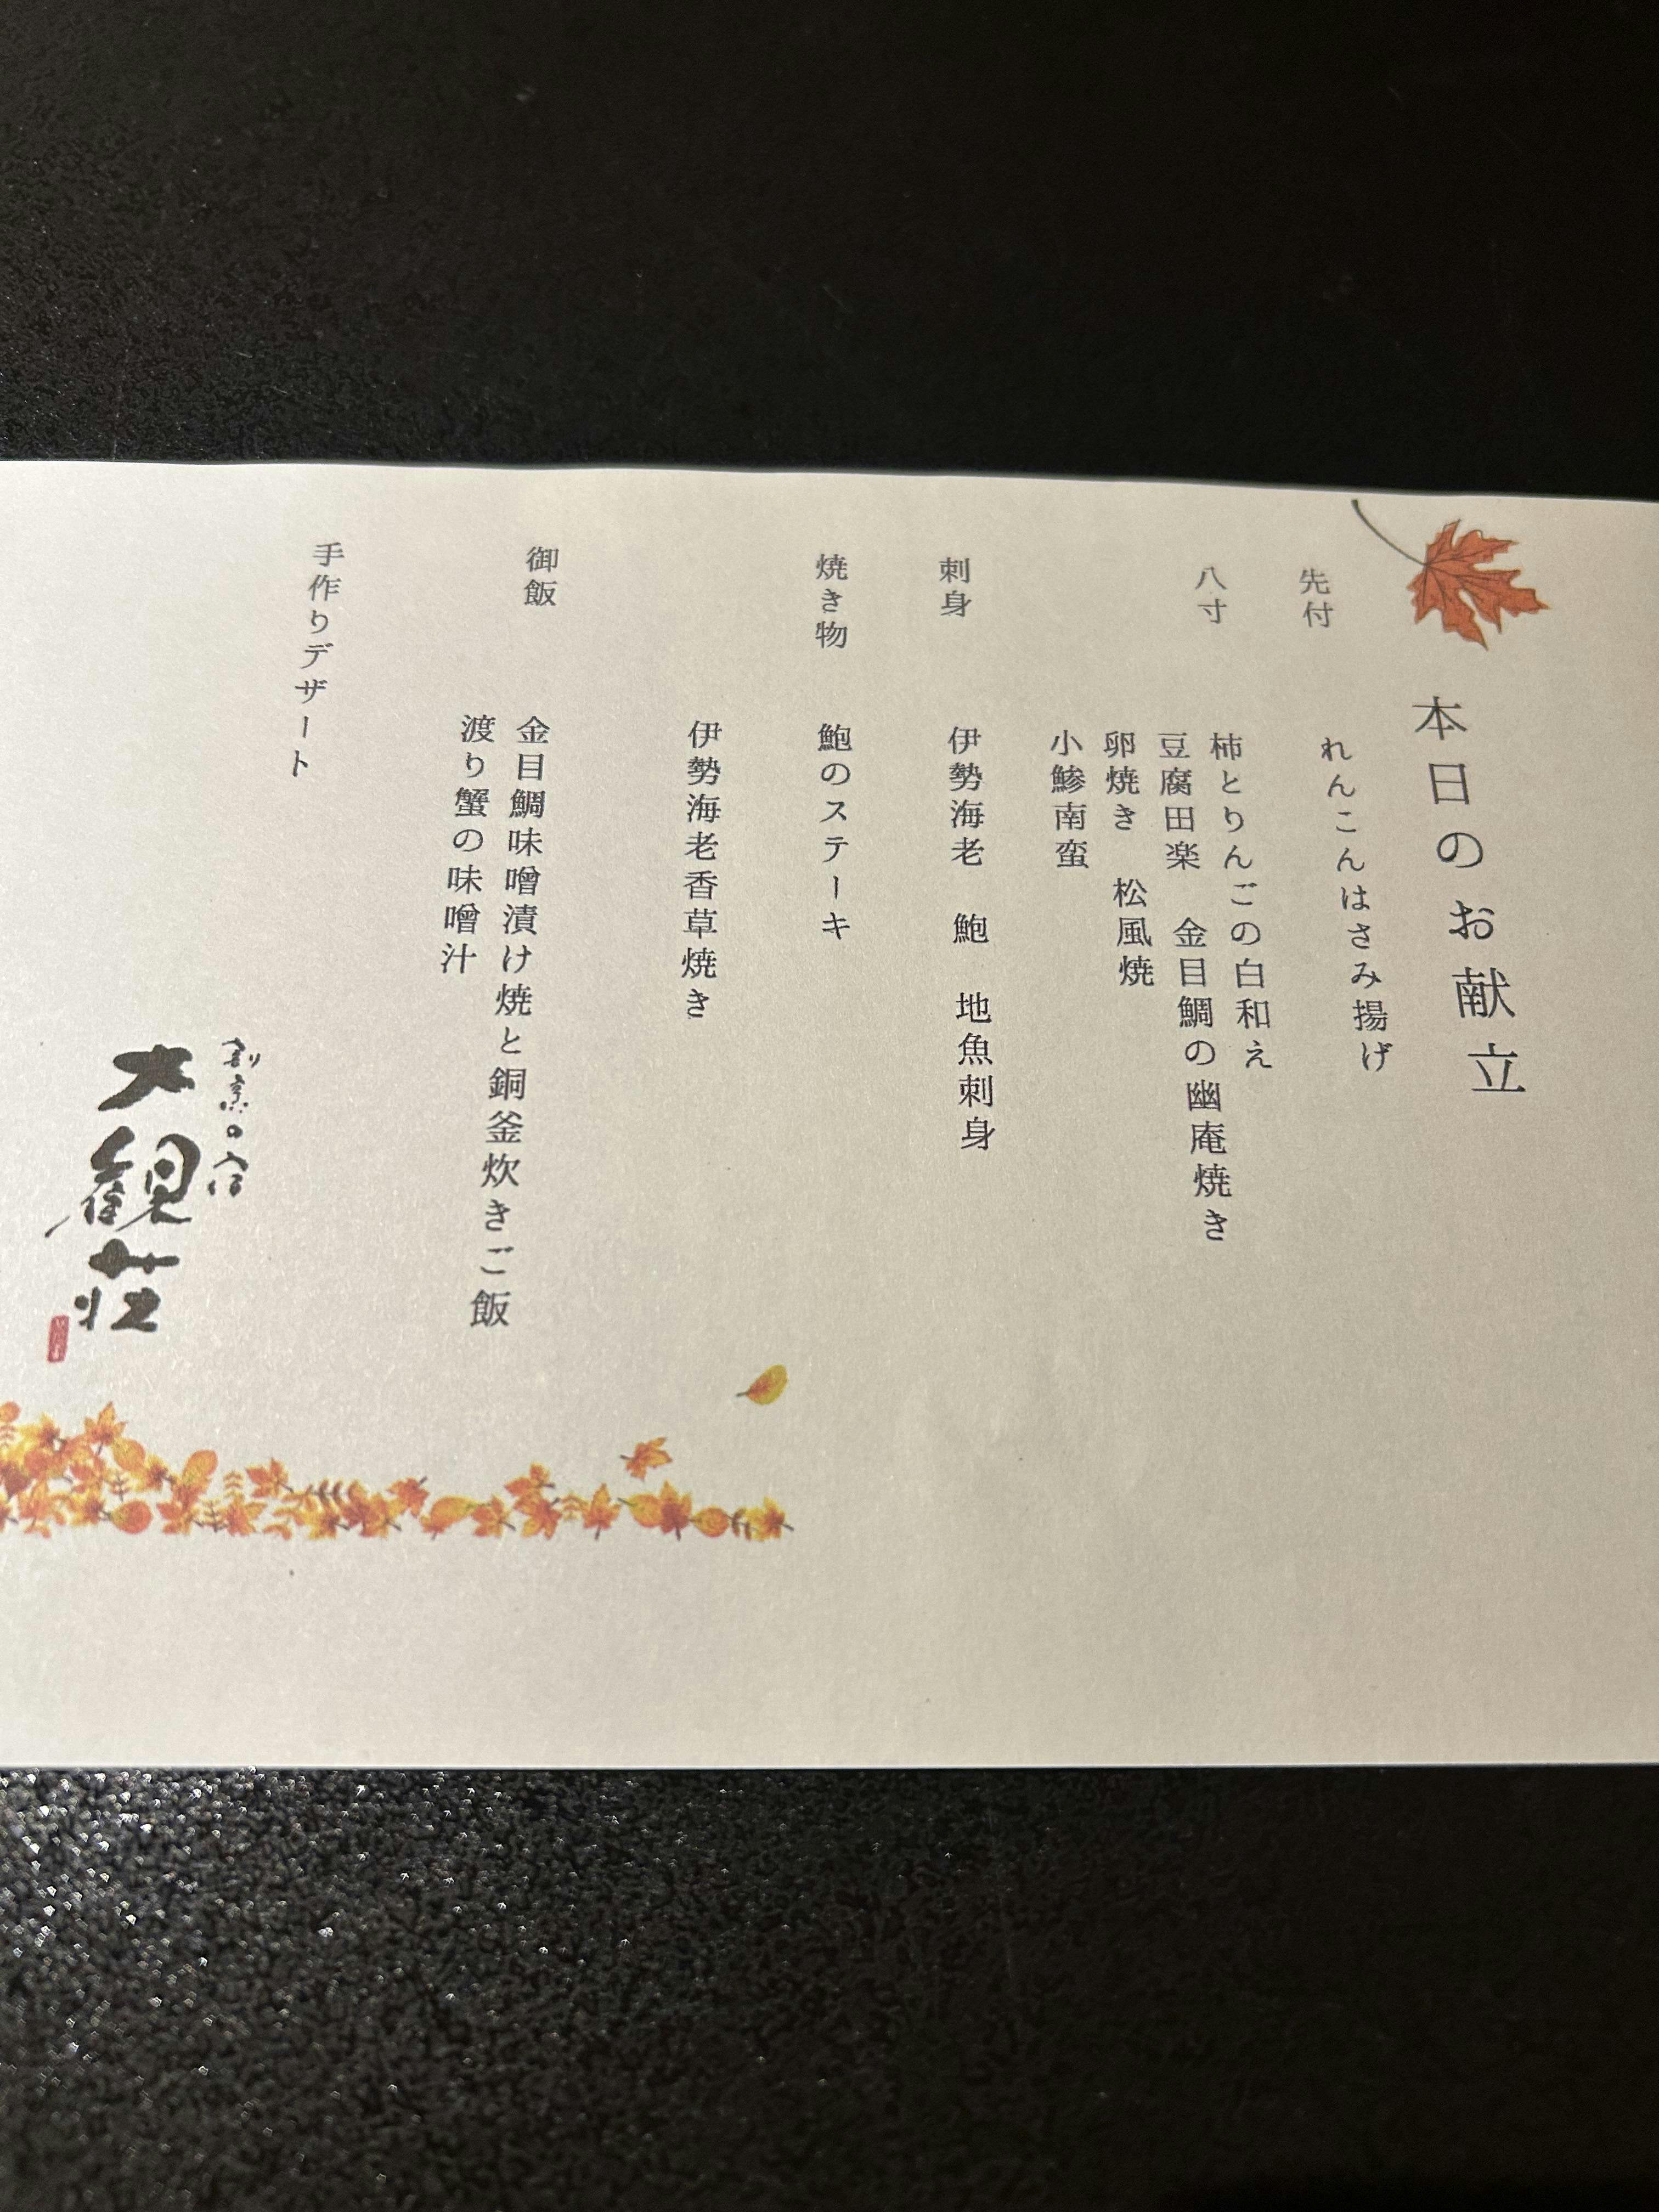 本日のお献立
先付
れんこんはさみ揚げ
八寸
柿とりんごの白和え
豆腐田楽 金目鯛の幽庵焼き
卵焼き 松風焼
小鯵南蛮
刺身
伊勢海老 鮑 地魚刺身
焼き物
鮑のステーキ
伊勢海老香草焼き
御飯
金目鯛味噌漬け焼と銅釜炊きご飯
渡り蟹の味噌汁
手作りデザート
割烹の宿
大観荘